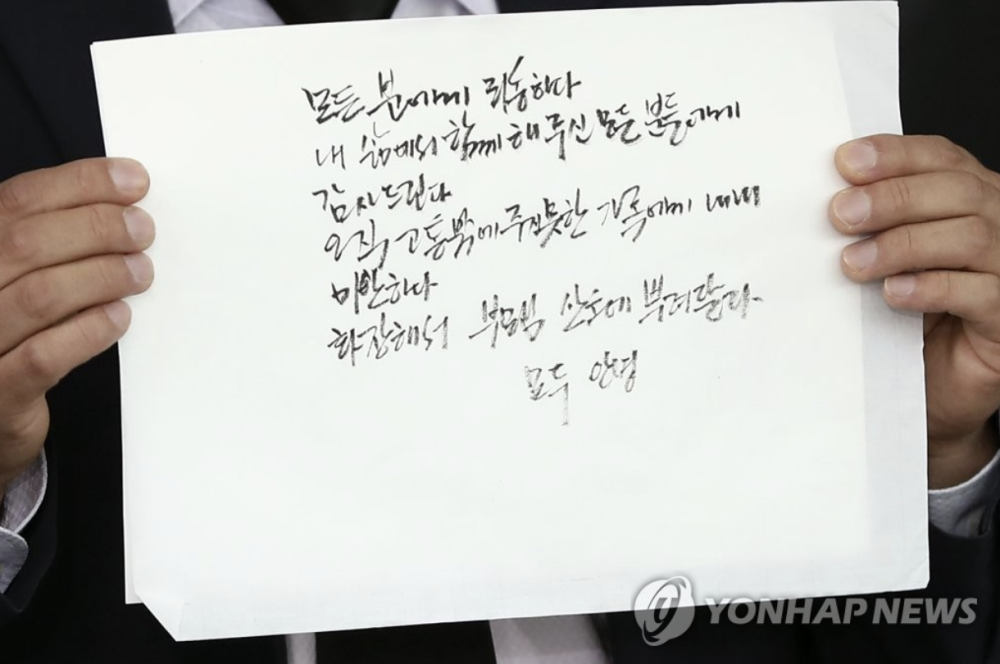 모든 분에게 죄송하다
내 삶에서 함께해 주신 모든 분들에게
감사드린다
오직 고통밖에 주지못한 가족에게 내내
미안하다
화장해서 부모님 산소에 뿌려달라
모두 안녕
YONHAP NEWS